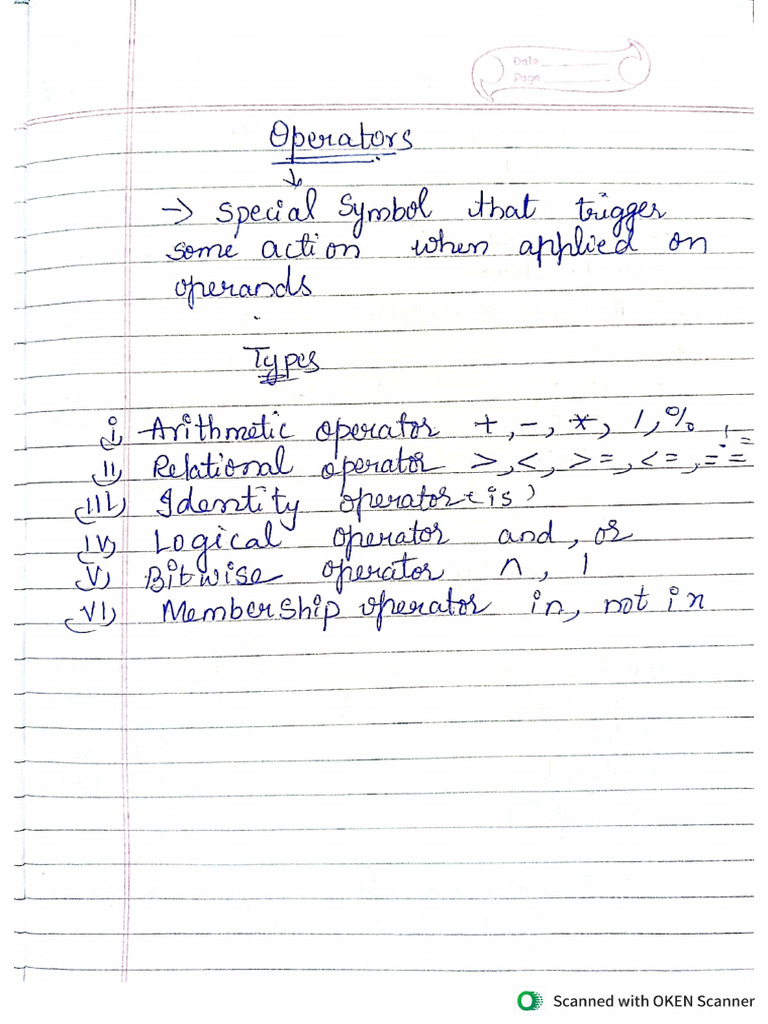 Date
Page
Operators
↓
→ Special Symbol that trigger
some action when applied on
operands
Types
i) Arithmetic operator +, -, *, /, %
ii) Relational operator >, <, >=, <=, ==, !=
iii) Identity operator (is)
iv) Logical operator and, or
v) Bitwise operator ^, |
vi) Membership operator in, not in
Scanned with OKEN Scanner